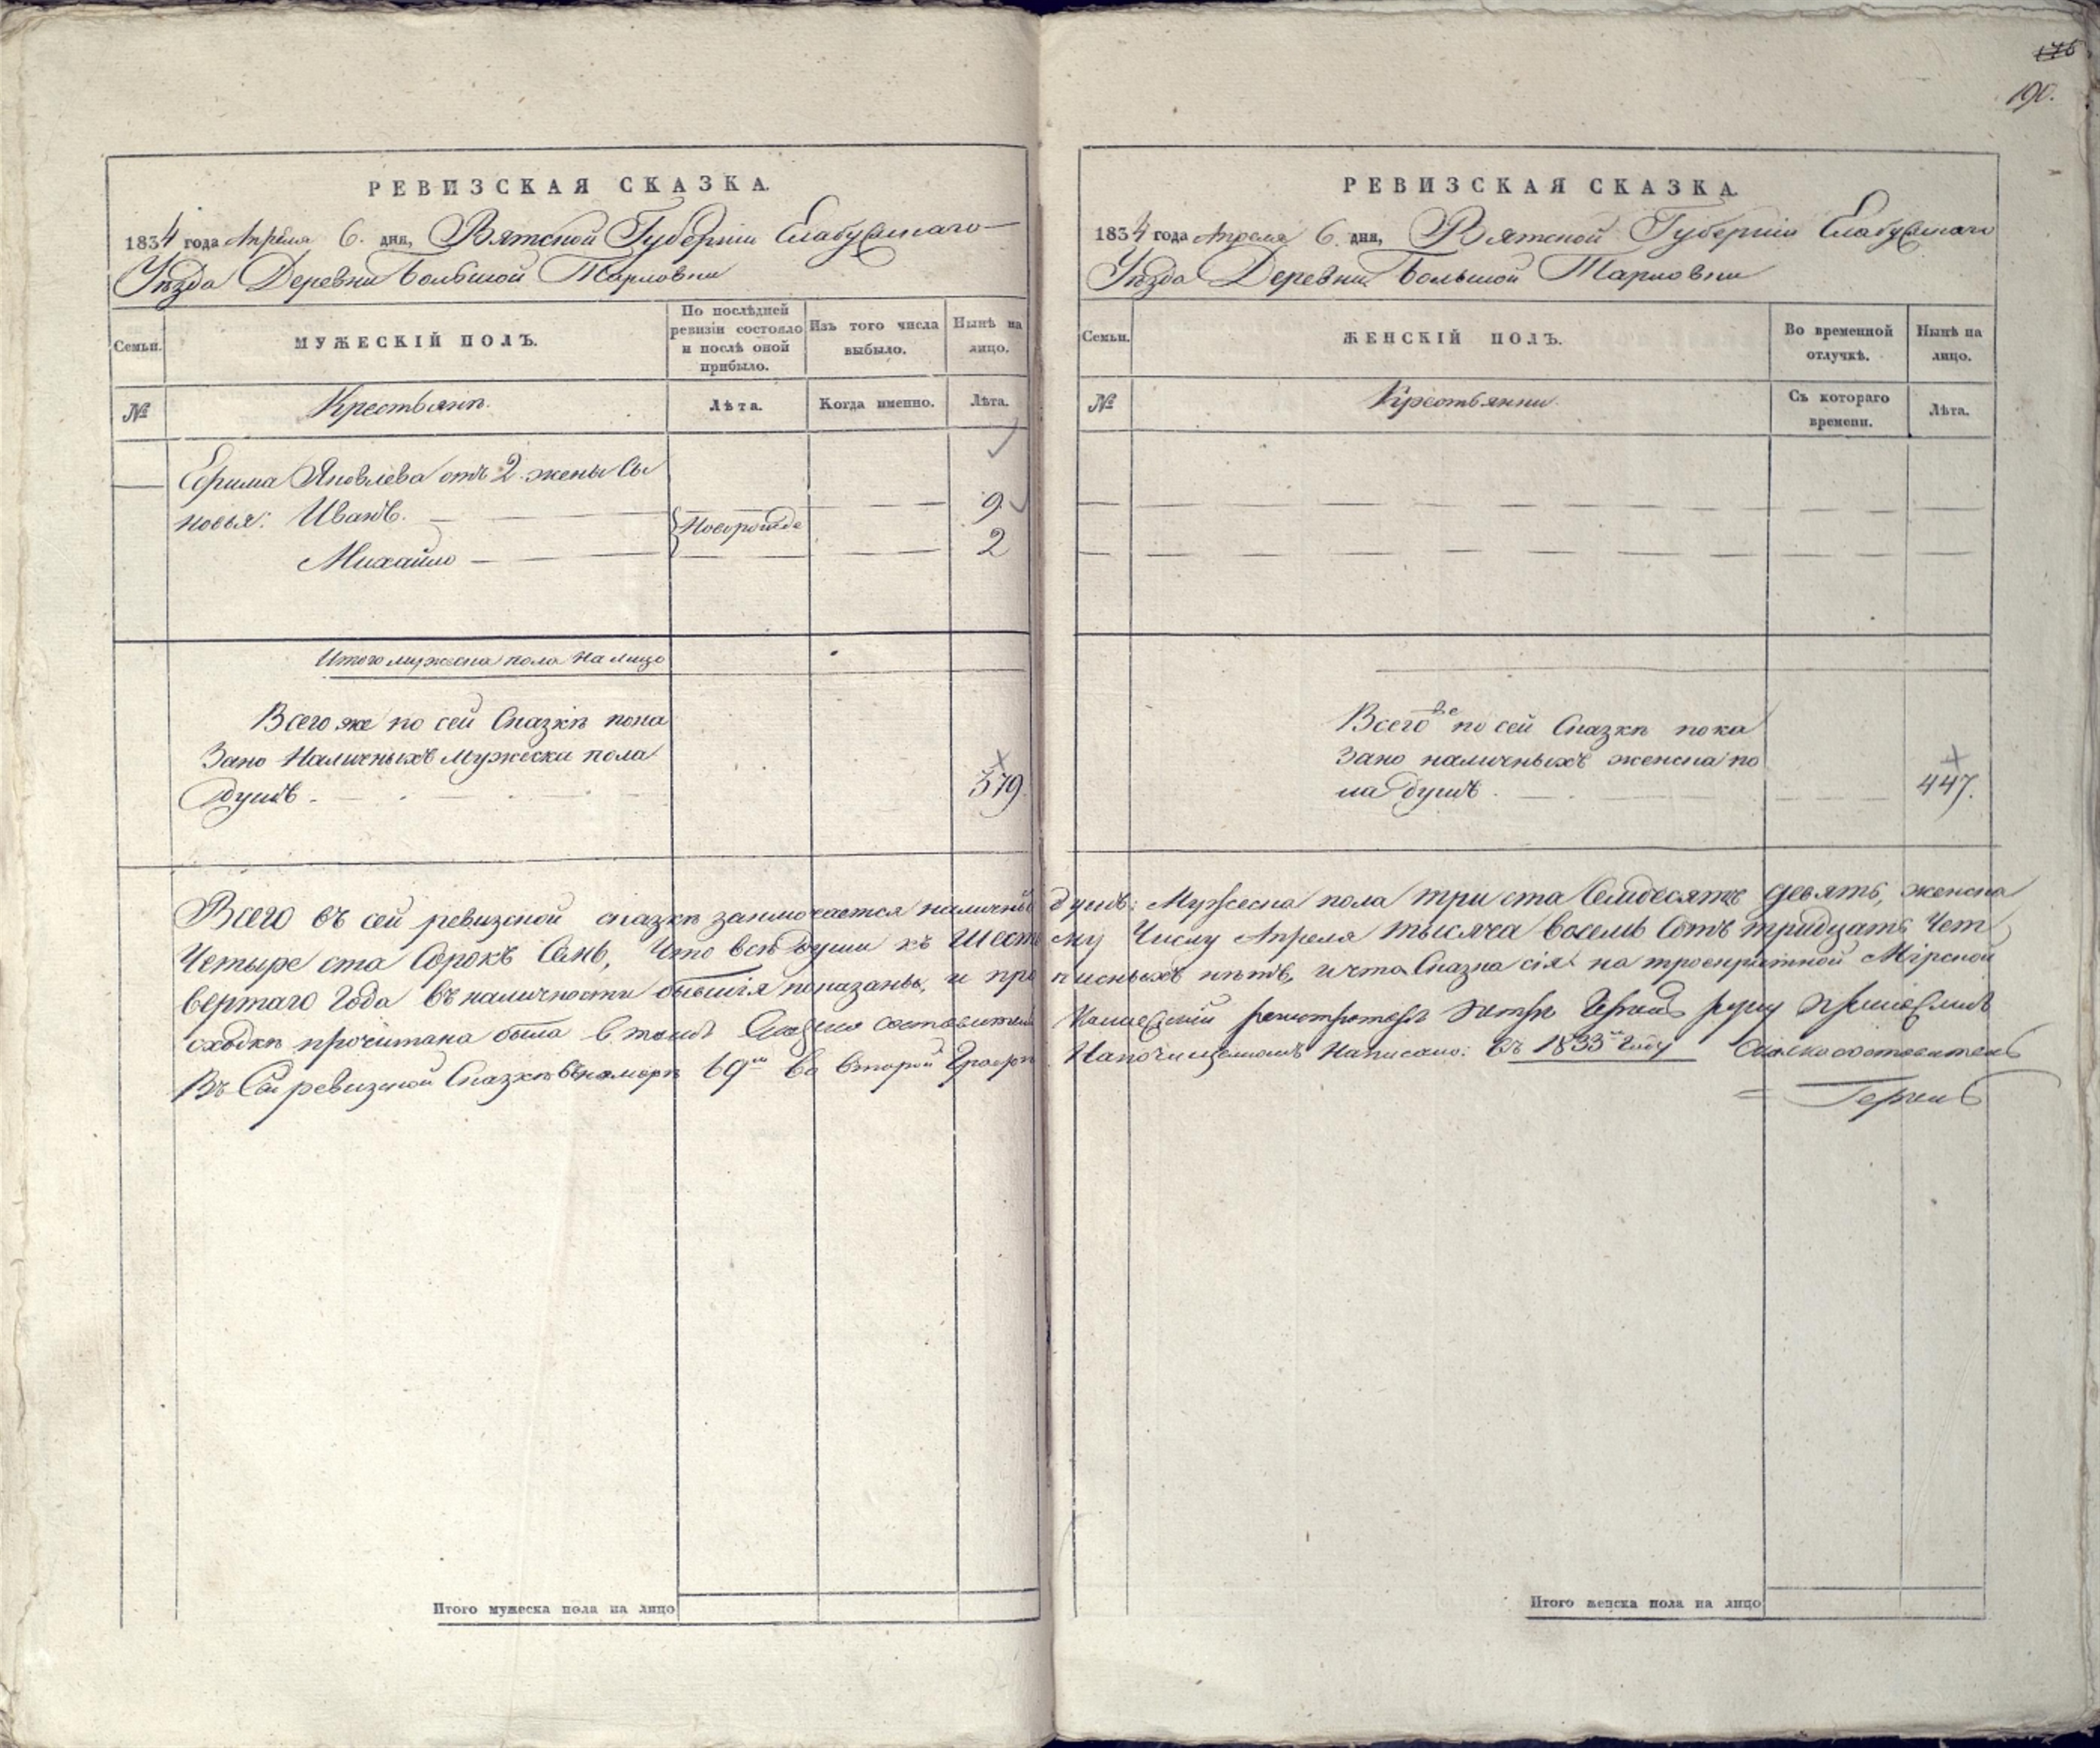 176
190.
РЕВИЗСКАЯ СКАЗКА.
1834 года Апреля 6. дня, Вятской Губернии Елабужскаго
Уѣзда Деревни Большой Тарловки
Семьи.
МУЖЕСКІЙ ПОЛЪ.
По послѣдней ревизіи состояло и послѣ оной прибыло.
Изъ того числа выбыло.
Нынѣ на лицо.
№
Крестьянъ.
Лѣта.
Когда именно.
Лѣта.
Ефима Яковлева отъ 2. жены Сы
новья: Иванъ. 9.
Новорожде
Михайло 2
Итого мужеска пола на лицо
Всего же по сей Сказкѣ пока
зано Наличныхъ Мужеска пола
душъ. 379.
РЕВИЗСКАЯ СКАЗКА.
1834 года Апреля 6. дня, Вятской Губерніи Елабужскаго
Уѣзда Деревни Большой Тарловки
Семьи.
ЖЕНСКІЙ ПОЛЪ.
Во временной отлучкѣ.
Нынѣ на лицо.
№
Крестьянки.
Съ котораго времени.
Лѣта.
Всего же по сей Сказкѣ пока
зано наличныхъ женска по
ла душъ. 447.
Всего въ сей ревизской сказкѣ заключается наличны душъ: Мужеска пола три ста Семдесятъ девять, женска
Четыре ста Сорокъ Семь, Что всѣ души къ Шесто му Числу Апреля тысяча восемь сотъ тридцать Чет
вертаго Года въ наличности бывшія показаны, и про писныхъ нѣтъ, и что Сказка сія на троекратной Мірской
сходкѣ прочитана была в томъ составитель регистраторъ руку приложилъ
Въ Сей ревизской Сказкѣ въ номерѣ 69м во второй Графѣ На почищеномъ Написано: въ 1833м Году